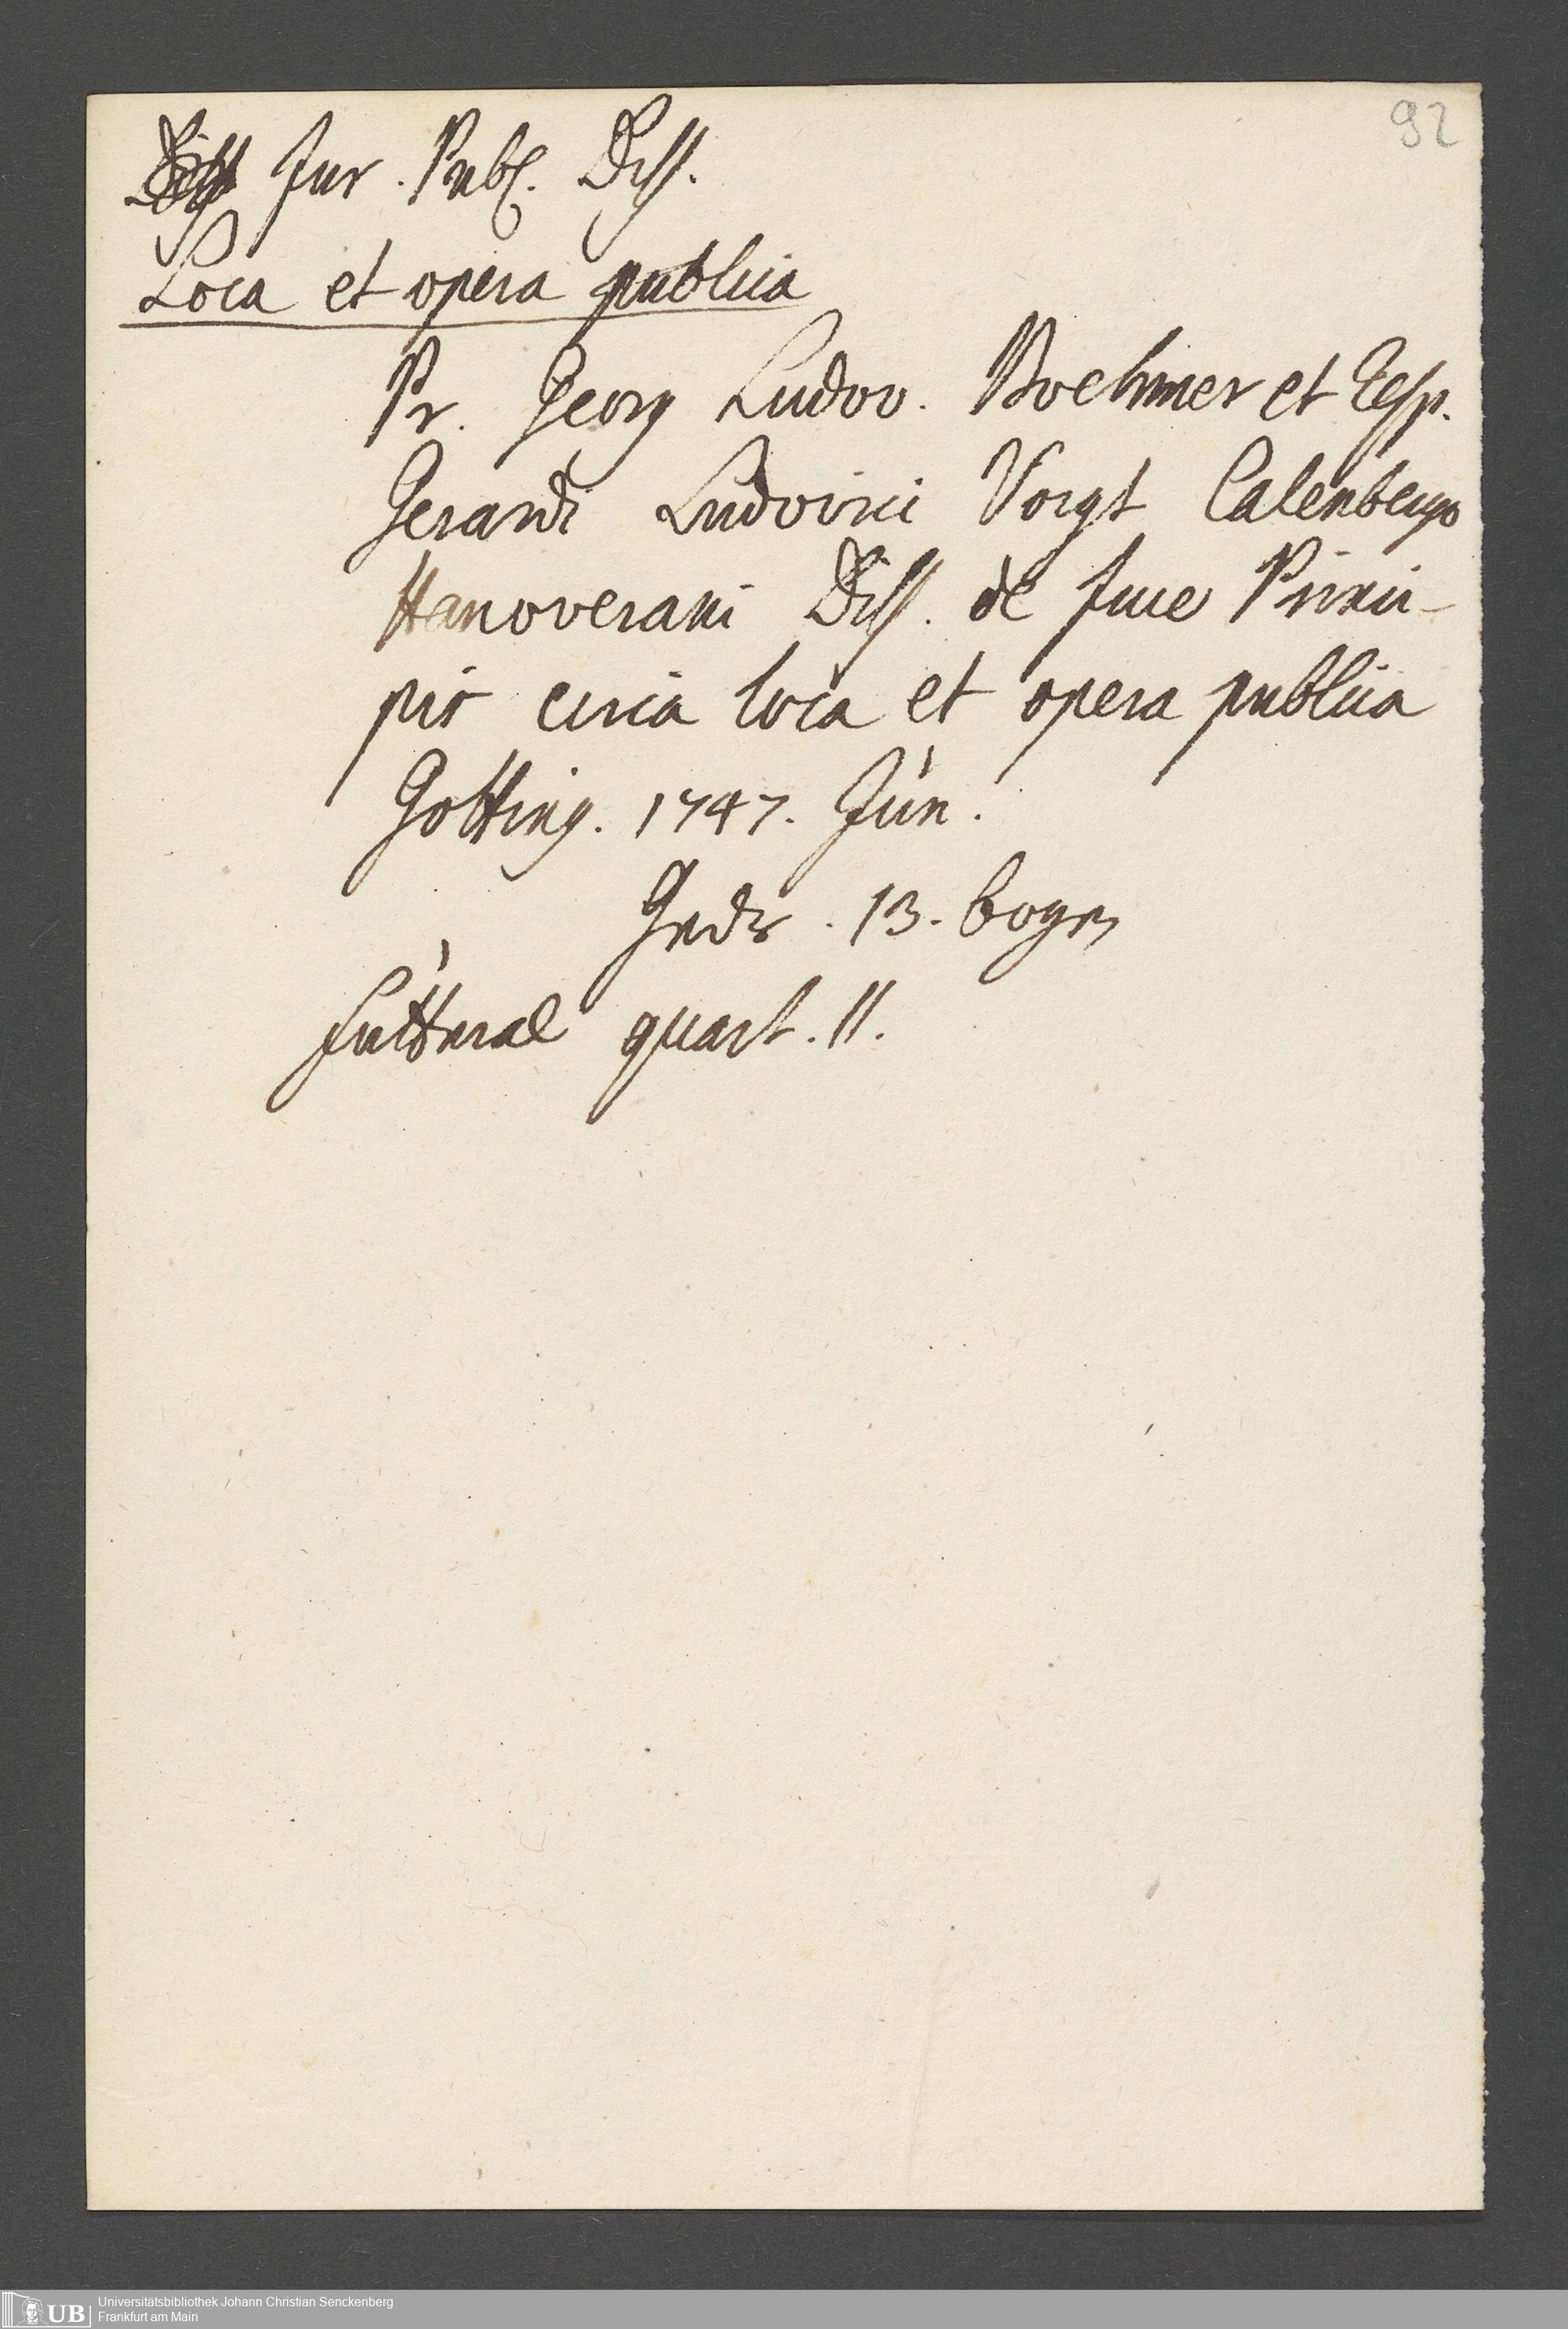 92
Jur. Publ. Diss.
Loca et opera publica
Pr. Georg Ludov. Boehmer et Resp.
Gerardi Ludovici Voigt Calenbergo
Hanoverani Diss. de Jure Princi-
pis circa loca et opera publica
Gotting. 1747. Jun.
13. bogen
Futteral quart. 11.
Universitätsbibliothek Johann Christian Senckenberg
Frankfurt am Main
UB